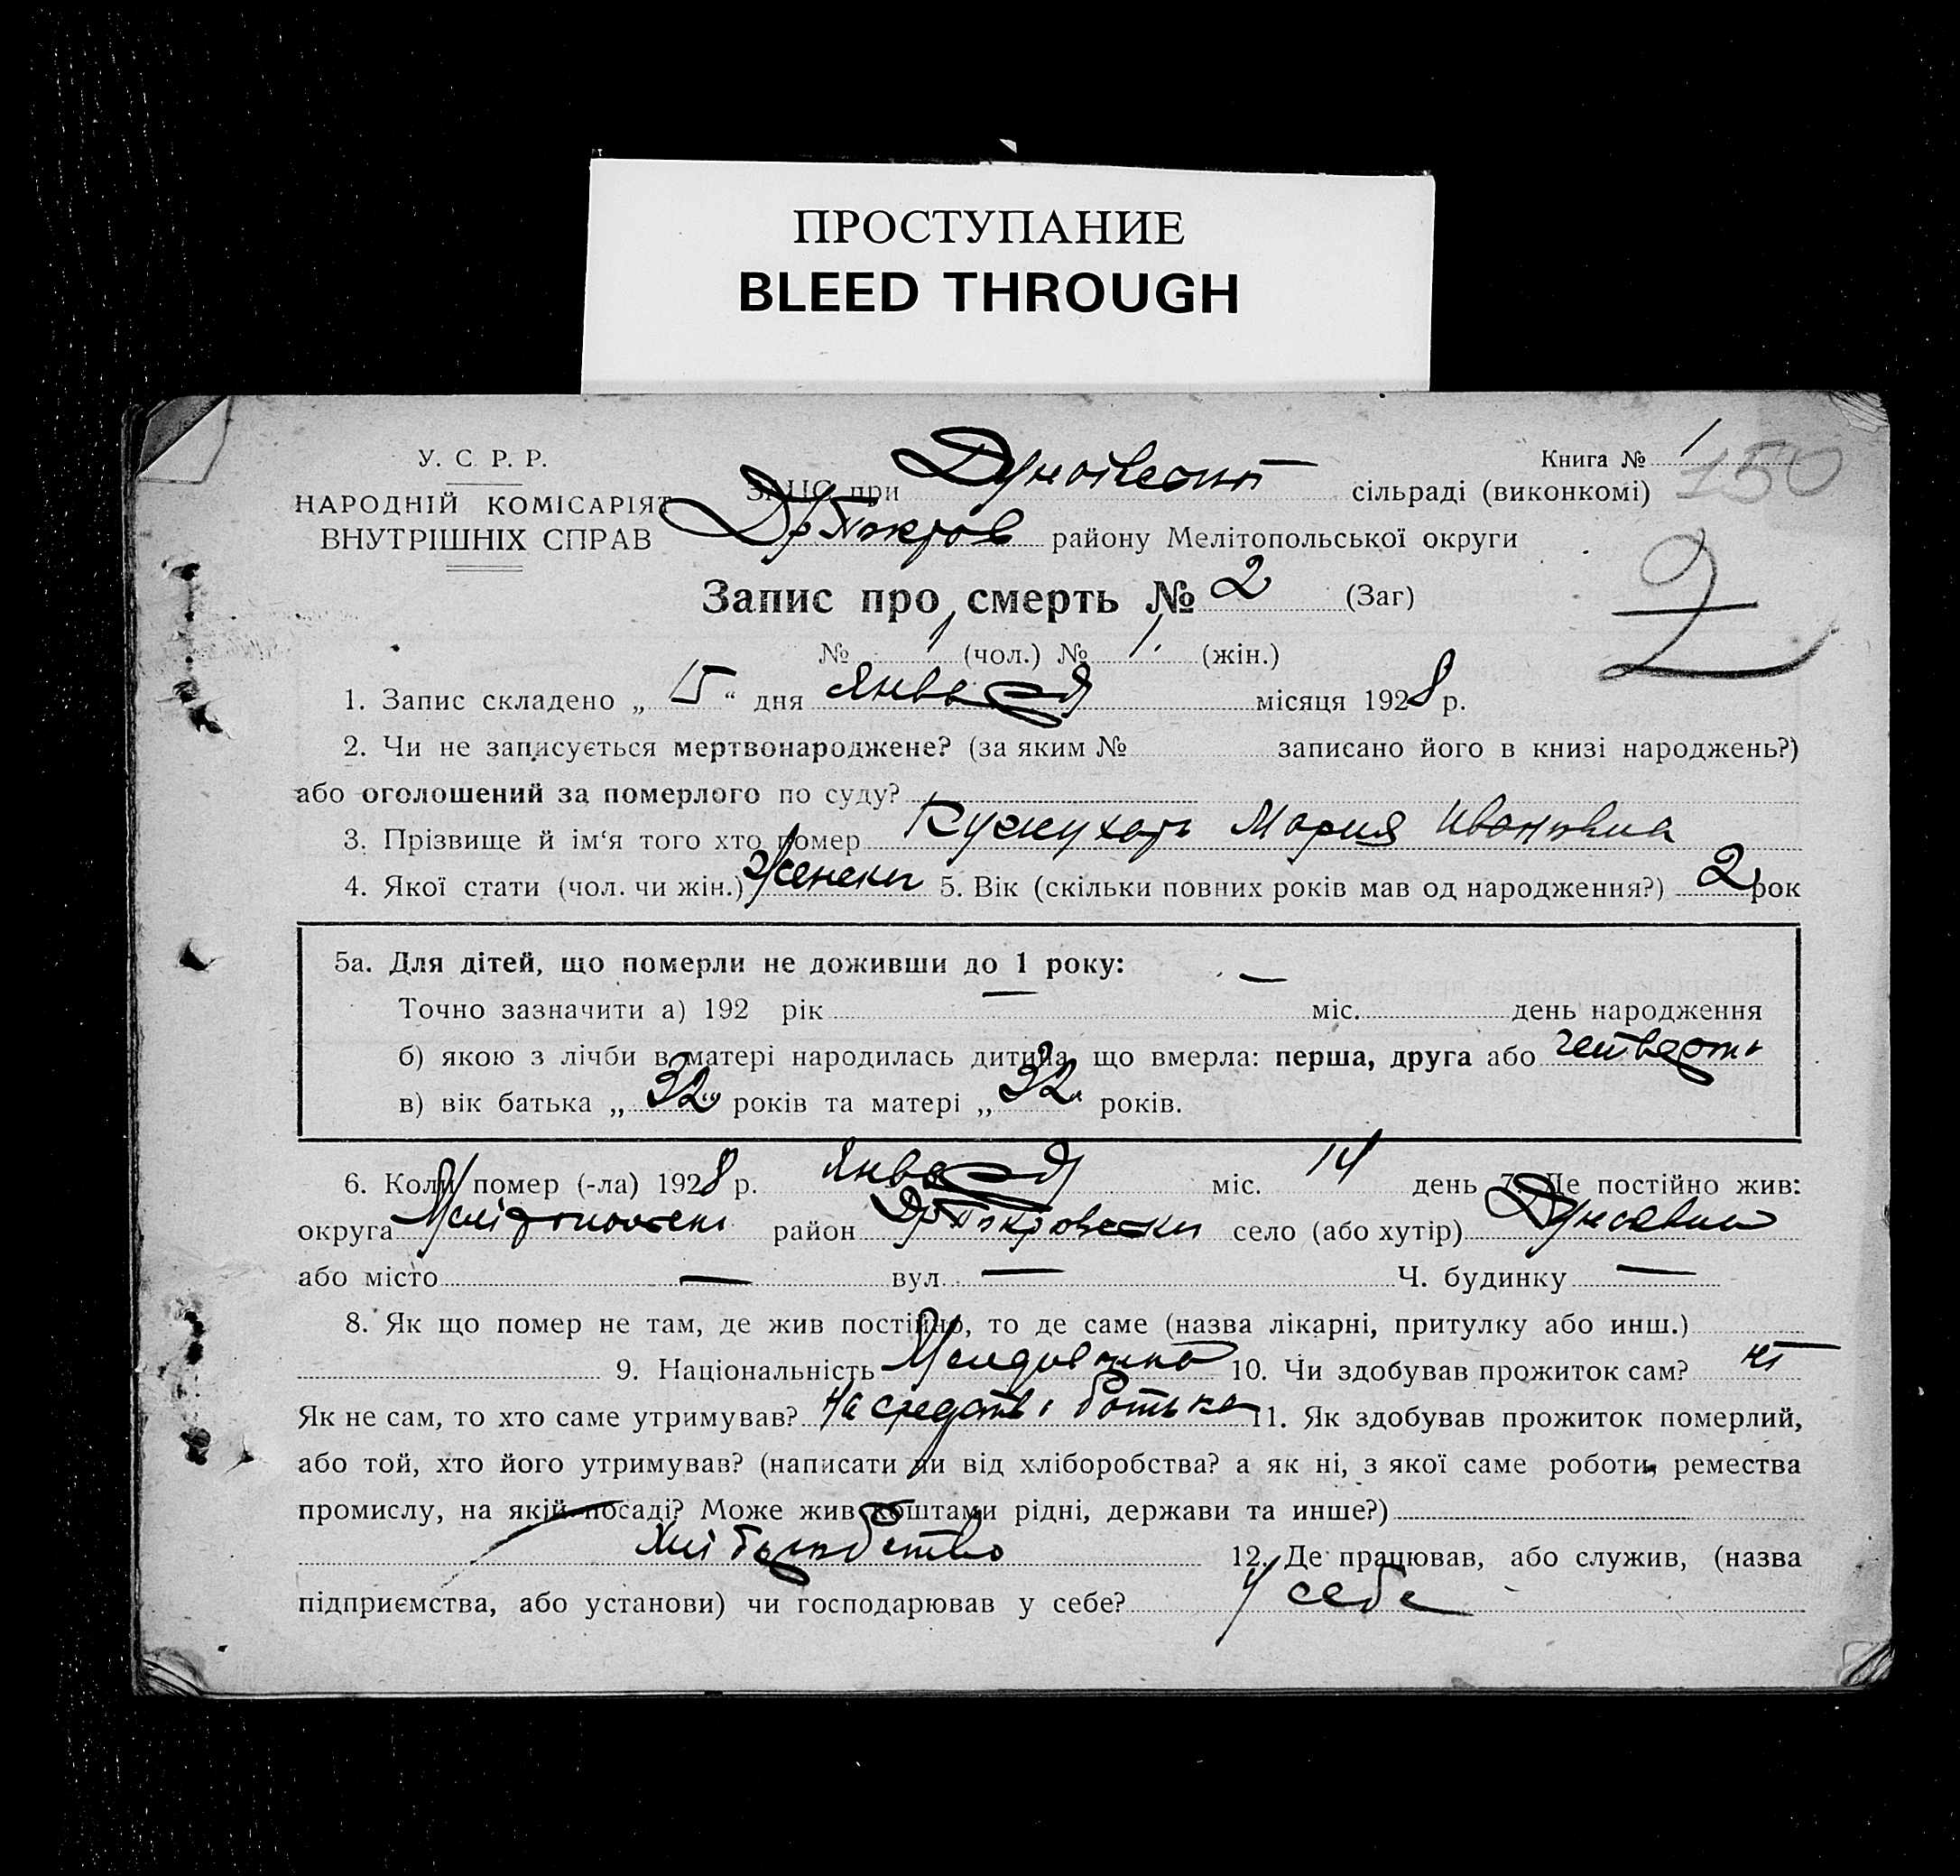 ПРОСТУПАНИЕ
BLEED THROUGH
У. С. Р. Р.
НАРОДНІЙ КОМІСАРІЯТ
ВНУТРІШНІХ СПРАВ
Книга № 1
150
ЗАЦС при сільраді (виконкомі)
Др Покров району Мелітопольської округи
2
Запис про смерть № 2 (Заг)
№ 1 (чол.) № 1. (жін.)
1. Запис складено „ 15 “ дня Января місяця 1928 р.
2. Чи не записується мертвонароджене? (за яким № записано його в книзі народжень?)
або оголошений за померлого по суду?
3. Прізвище й ім‘я того хто помер Мария Ивановна
4. Якої стати (чол. чи жін.) 5. Вік (скільки повних років мав од народження?) 2 рок
5а. Для дітей, що померли не доживши до 1 року: —
Точно зазначити а) 192 рік — міс. день народження
б) якою з лічби в матері народилась дитина, що вмерла: перша, друга або четверта
в) вік батька „ 32 “ років та матері „ 32 “ років.
6. Коли помер (-ла) 1928 р. Января міс. 14 день 7. Де постійно жив:
округа район село (або хутір)
або місто — вул. — Ч. будинку —
8. Як що помер не там, де жив постійно, то де саме (назва лікарні, притулку або инш.)
9. Національність 10. Чи здобував прожиток сам? ні
Як не сам, то хто саме утримував? на средстві батька 11. Як здобував прожиток померлий,
або той, хто його утримував? (написати чи від хліборобства? а як ні, з якої саме роботи, ремества
промислу, на якій посаді? Може жив коштами рідні, держави та инше?)
хліборобство 12. Де працював, або служив, (назва
підприємства, або установи) чи господарював у себе? у себе